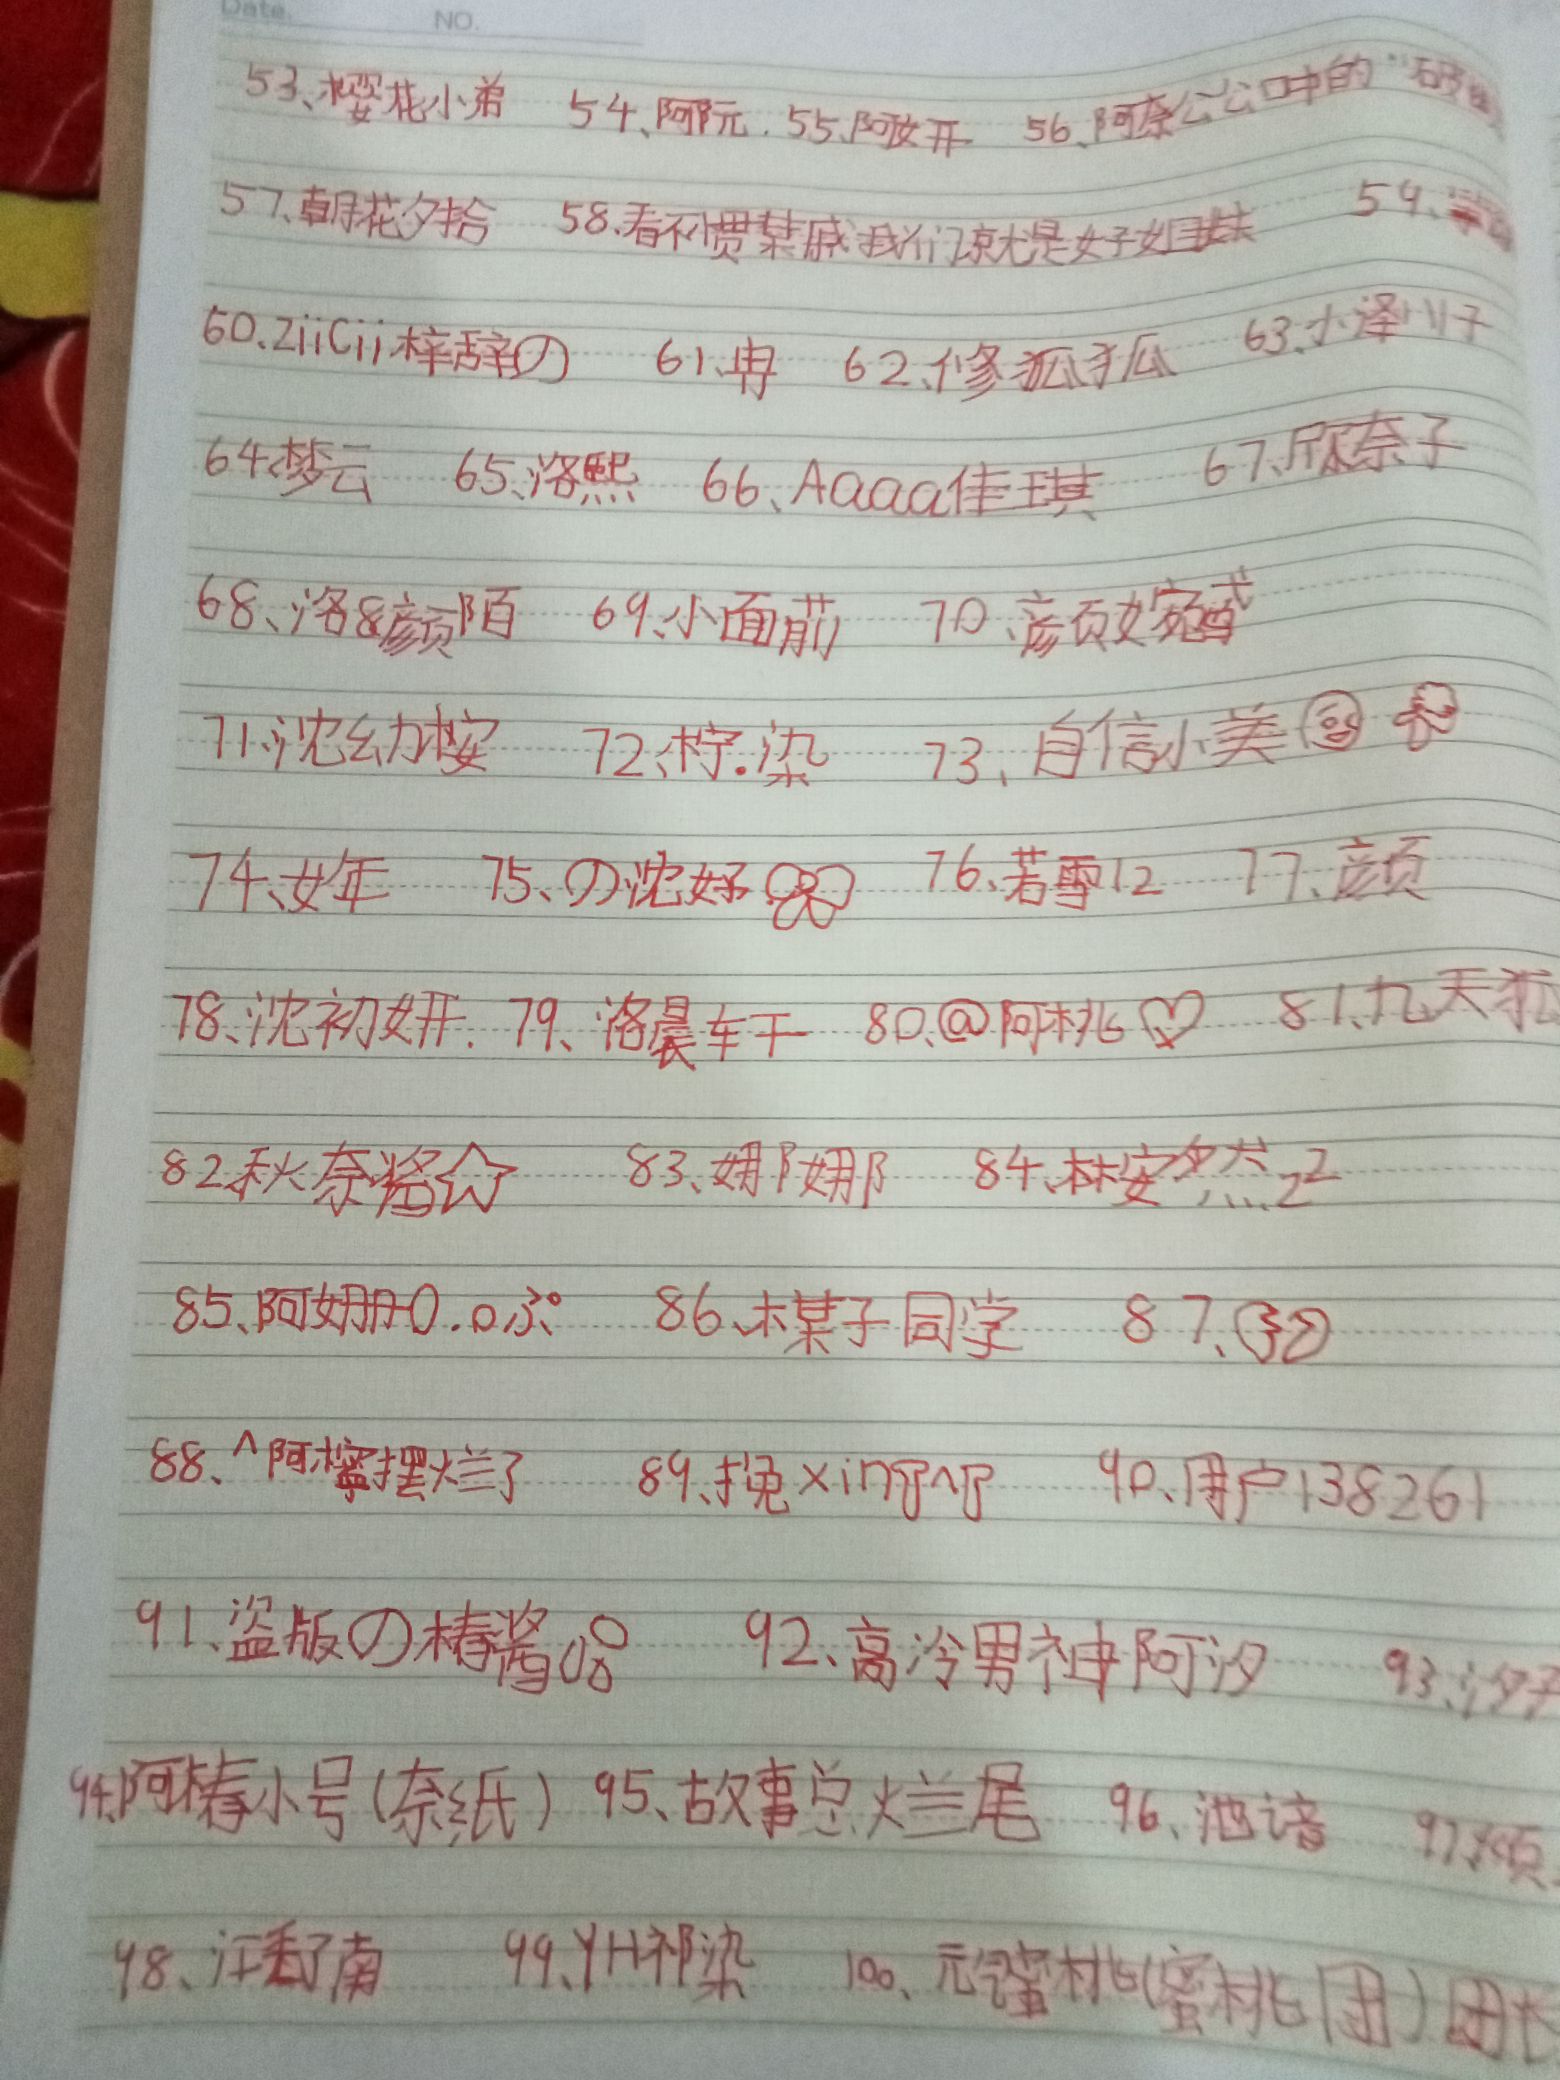 Date. NO.
53、樱花小弟 54、阿阮. 55、阿妍 56、阿奈公公口中的"
57、朝花夕拾 58、看不惯某戚我们就是好姐妹 59、
60、ZiiCii梓辞の 61、冉 62、修狐狐 63、小泽川子
64、梦云 65、洛熙 66、Aaaa佳琪 67、欣奈子
68、洛&颜陌 69、小面前 70、颜婉
71、沈幼桉 72、柠.染 73、自信小美
74、女年 75、の沈好 76、若雪12 77、颜
78、沈初妍. 79、洛晨车干 80、@阿桃♡ 81、九天狐
82、秋奈酱☆ 83、娜娜 84、林安然zz
85、阿姗0.oぷ 86、楳子同学 87、
88、^阿檸摆烂了 89、挽xing 90、用户138261
91、盗版の椿酱 92、高冷男神阿汐 93、汐子
94、阿椿小号(奈纸) 95、故事总烂尾 96、池谙 97、
98、江 南 99、YH祁染 100、元气蜜桃(蜜桃团)团长